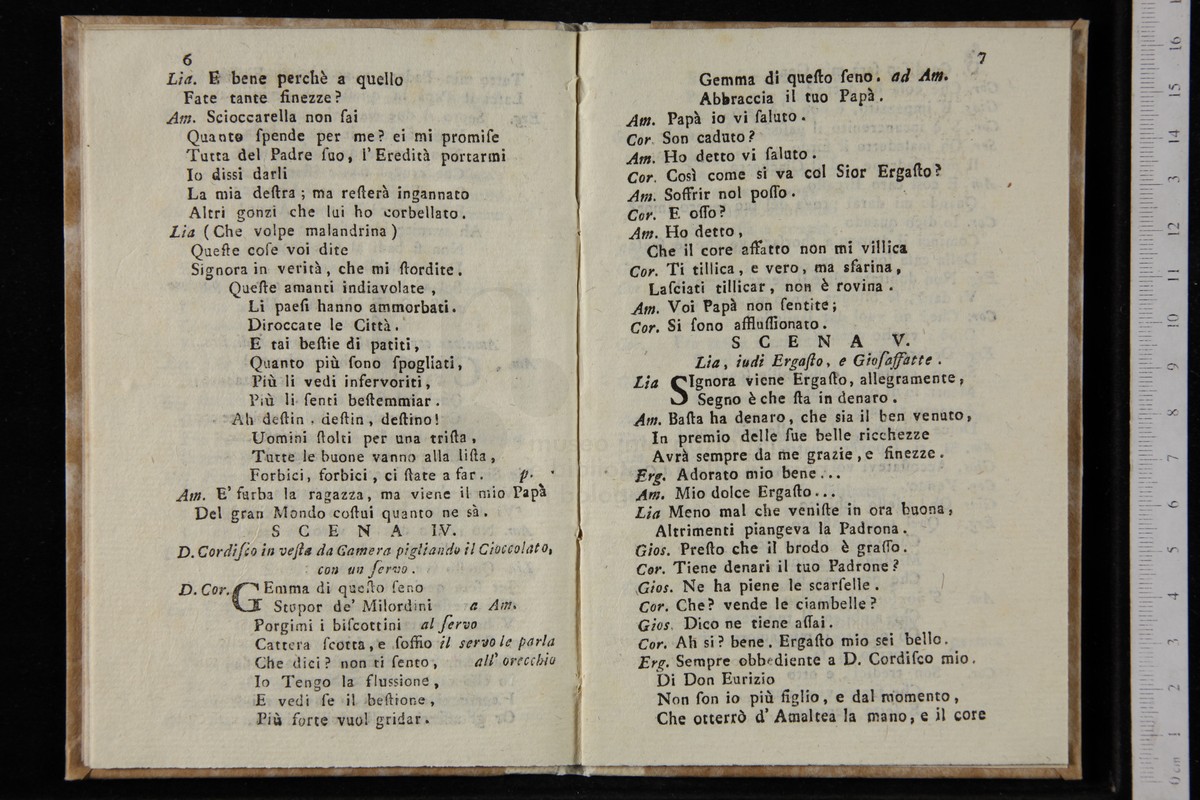 6
Lia. E bene perchè a quello
Fate tante finezze?
Am. Scioccarella non fai
Quanto ſpende per me? ei mi promiſe
Tutta del Padre ſuo, l'Eredità portarmi
Io dissi darli
La mia deſtra; ma reſterà ingannato
Altri gonzi che lui ho corbellato.
Lia (Che volpe malandrina)
Queſte coſe voi dite
Signora in verità, che mi ſtordite.
Queſte amanti indiavolate,
Li paeſi hanno ammorbati.
Diroccate le Città.
E tai beſtie di patiti,
Quanto più ſono ſpogliati,
Più li vedi infervoriti,
Più li ſenti beſtemmiar.
Ah deſtin, deſtin, deſtino!
Uomini ſtolti per una triſta,
Tutte le buone vanno alla liſta,
Forbici, forbici, ci ſtate a far. p.
Am. E' furba la ragazza, ma viene il mio Papà
Del gran Mondo coſtui quanto ne sà.
SCENA IV.
D. Cordiſco in veſta da Camera pigliando il Cioccolato,
con un ſervo.
D. Cor. GEmma di queſto ſeno
Stupor de' Milordini a Am.
Porgimi i biſcottini al ſervo
Cattera ſcotta, e ſoffio il servo le parla
Che dici? non ti ſento, all' orecchio
Io Tengo la flussione,
E vedi ſe il beſtione,
Più forte vuol gridar.
7
Gemma di queſto ſeno. ad Am.
Abbraccia il tuo Papà.
Am. Papà io vi ſaluto.
Cor. Son caduto?
Am. Ho detto vi ſaluto.
Cor. Così come si va col Sior Ergaſto?
Am. Soffrir nol poſſo.
Cor. E oſſo?
Am. Ho detto,
Che il core affatto non mi villica
Cor. Ti tillica, e vero, ma sfarina,
Laſciati tillicar, non è rovina.
Am. Voi Papà non ſentite;
Cor. Si ſono affluſſionato.
SCENA V.
Lia, iudi Ergaſto, e Gioſaffatte.
Lia SIgnora viene Ergaſto, allegramente,
Segno è che ſta in denaro.
Am. Baſta ha denaro, che sia il ben venuto,
In premio delle ſue belle ricchezze
Avrà sempre da me grazie, e finezze.
Erg. Adorato mio bene...
Am. Mio dolce Ergaſto...
Lia Meno mal che veniſte in ora buona,
Altrimenti piangeva la Padrona.
Gios. Preſto che il brodo è graſſo.
Cor. Tiene denari il tuo Padrone?
Gios. Ne ha piene le scarfelle.
Cor. Che? vende le ciambelle?
Gios. Dico ne tiene aſſai.
Cor. Ah si? bene. Ergaſto mio sei bello.
Erg. Sempre obbediente a D. Cordifco mio.
Di Don Eurizio
Non ſon io più figlio, e dal momento,
Che otterrò d'Amaltea la mano, e il core